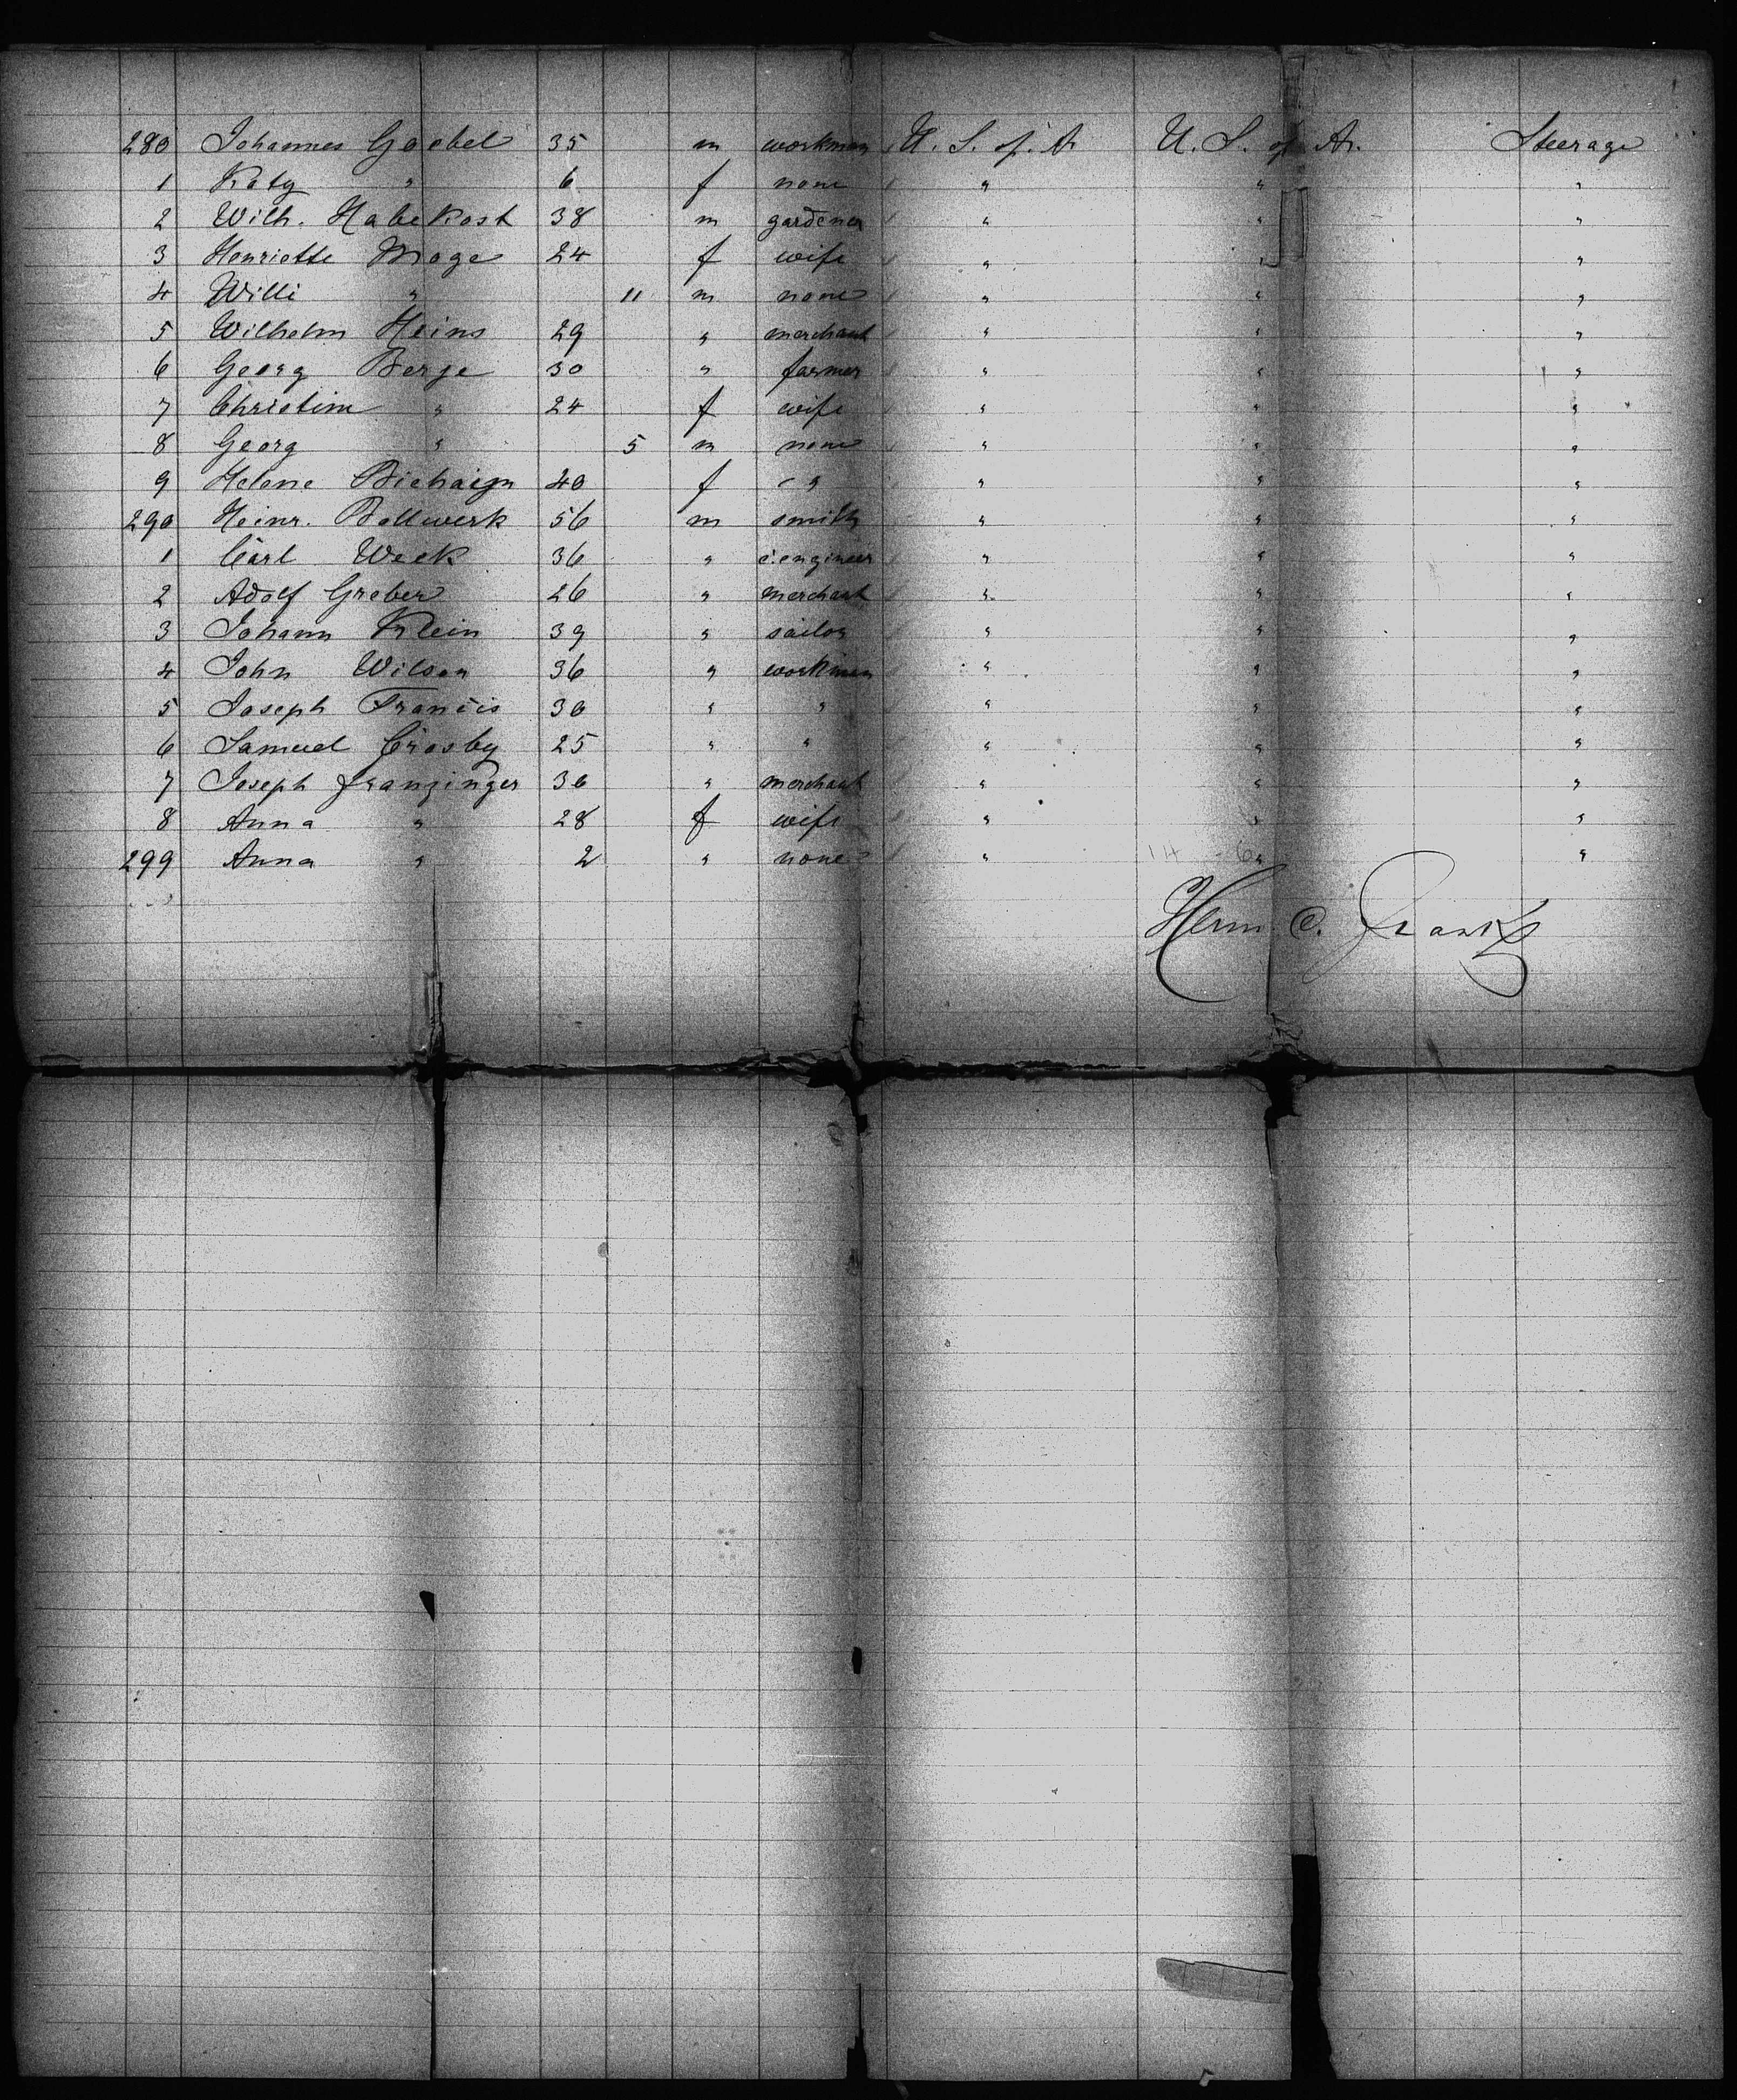 280 Johannes Goebel 35 m workman U. S. of. A U. S. of Ar. Steerage
1 Katy " 6 f none " " "
2 Wilh. Habekost 38 m gardener " " "
3 Henriette 24 f wife " " "
4 Willi " 11 m none " " "
5 Wilhelm Heins 29 " merchant " " "
6 Georg Berge 30 " farmer " " "
7 Christine " 24 f wife " " "
8 Georg " 5 m none " " "
9 Helene 40 f " " " "
290 Heinr. Bollwerk 56 m smith " " "
1 Carl Week 36 " c. engineer " " "
2 Adolf Greber 26 " merchant " " "
3 Johann Klein 39 " sailor " " "
4 John Wilson 36 " workman " " "
5 Joseph Francis 30 " " " " "
6 Samuel Crosby 25 " " " " "
7 Joseph Franzinger 36 " merchant " " "
8 Anna " 28 f wife " " "
299 Anna " 2 " none " " "
Herm. C.